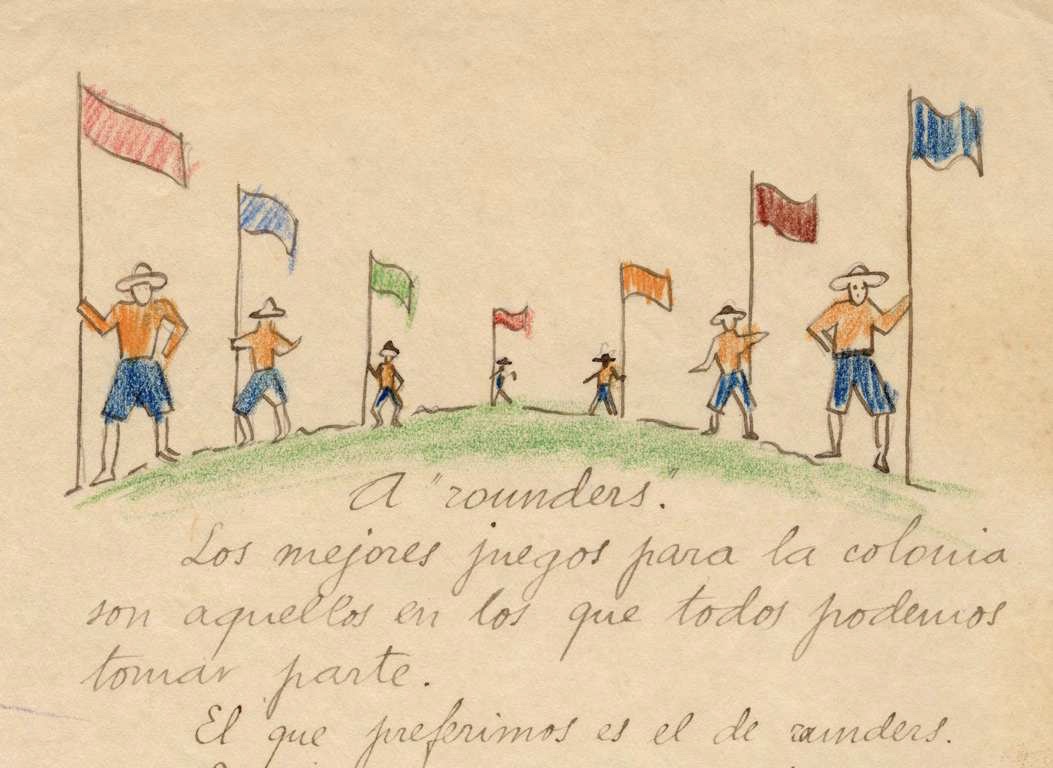 A "rounders".
Los mejores juegos para la colonia
son aquellos en los que todos podemos
tomar parte.
El que preferimos es el de rounders.